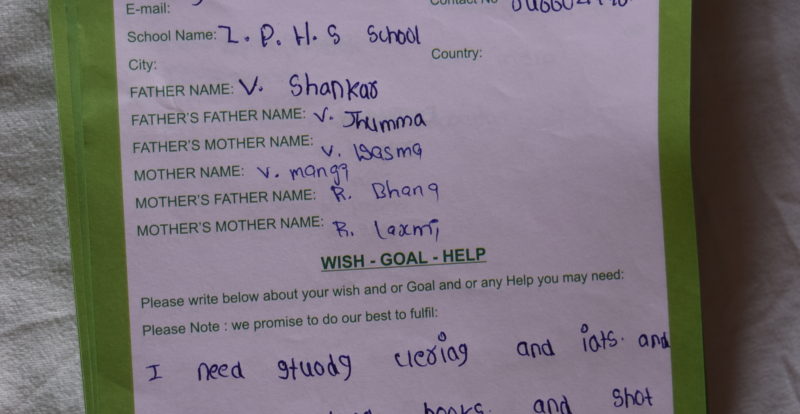 E-mail:
School Name: Z. P. H. S School
City: Country:
FATHER NAME: V. Shankar
FATHER'S FATHER NAME: V. Jhumma
FATHER'S MOTHER NAME: V.
MOTHER NAME: V. manga
MOTHER'S FATHER NAME: R. Bhana
MOTHER'S MOTHER NAME: R. laxmi
WISH - GOAL - HELP
Please write below about your wish and or Goal and or any Help you may need:
Please Note : we promise to do our best to fulfil:
I need and and
books. and shot